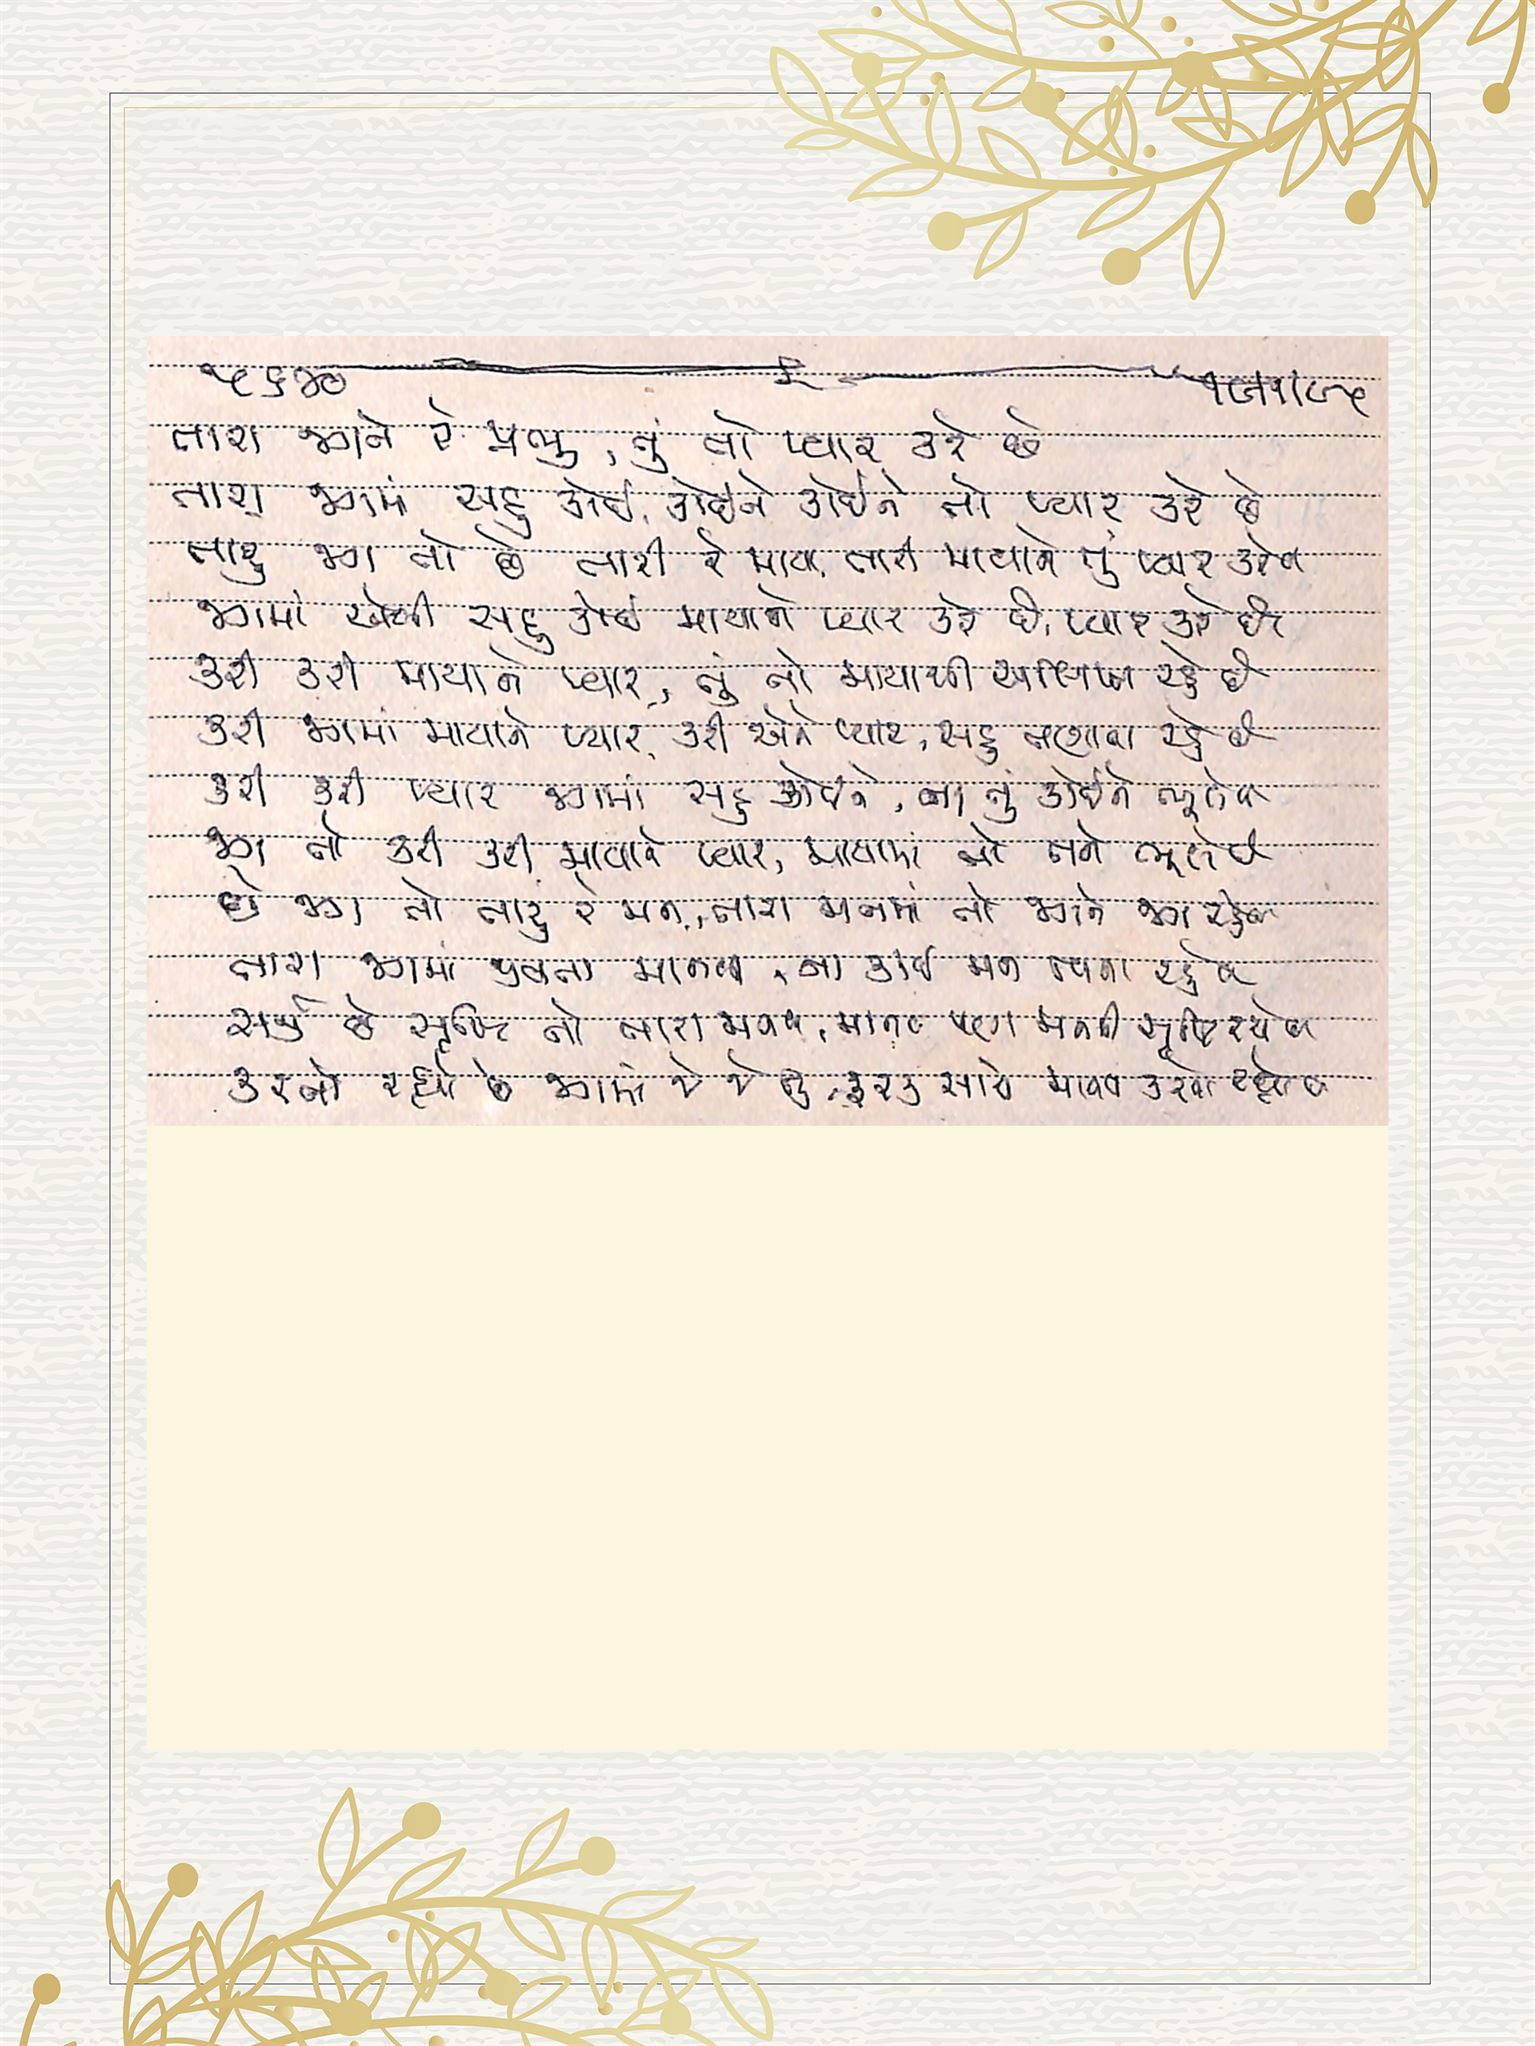 ૫૬૪૦
તારા જગને રે પ્રભુ, તું તો પ્યાર કરે છે
તારા જગમાં સહુ કોઈ, કોઈને કોઈને તો પ્યાર કરે છે
તારું જગ તો છે તારી રે માયા, તારી માયાને તું પ્યાર કરે છે
જગમાં એથી સહુ કોઈ માયાને પ્યાર કરે છે, પ્યાર કરે છે
કરી કરી માયાને પ્યાર, તું તો માયાથી અલિપ્ત રહે છે
કરી જગમાં માયાને પ્યાર, કરી એને પ્યાર, સહુ તણાતા રહે છે
કરી કરી પ્યાર જગમાં સહુ કોઈને, ના તું કોઈને ભૂલે છે
જગ તો કરી કરી માયાને પ્યાર, માયામાં તો તને ભૂલે છે
છે જગ તો તારું રે મન, તારા મનમાં તો જગને જગ રહે છે
તારા જગમાં માનવ, ના કોઈ મન વિના રહે છે
સર્જી છે સૃષ્ટિ તો તારા મનથી, માનવ પણ મનથી સૃષ્ટિ રચે છે
કરતો રહ્યો છે જગમાં જે જે તું, કરતુ સાચે માનવ કરતો રહ્યો છે